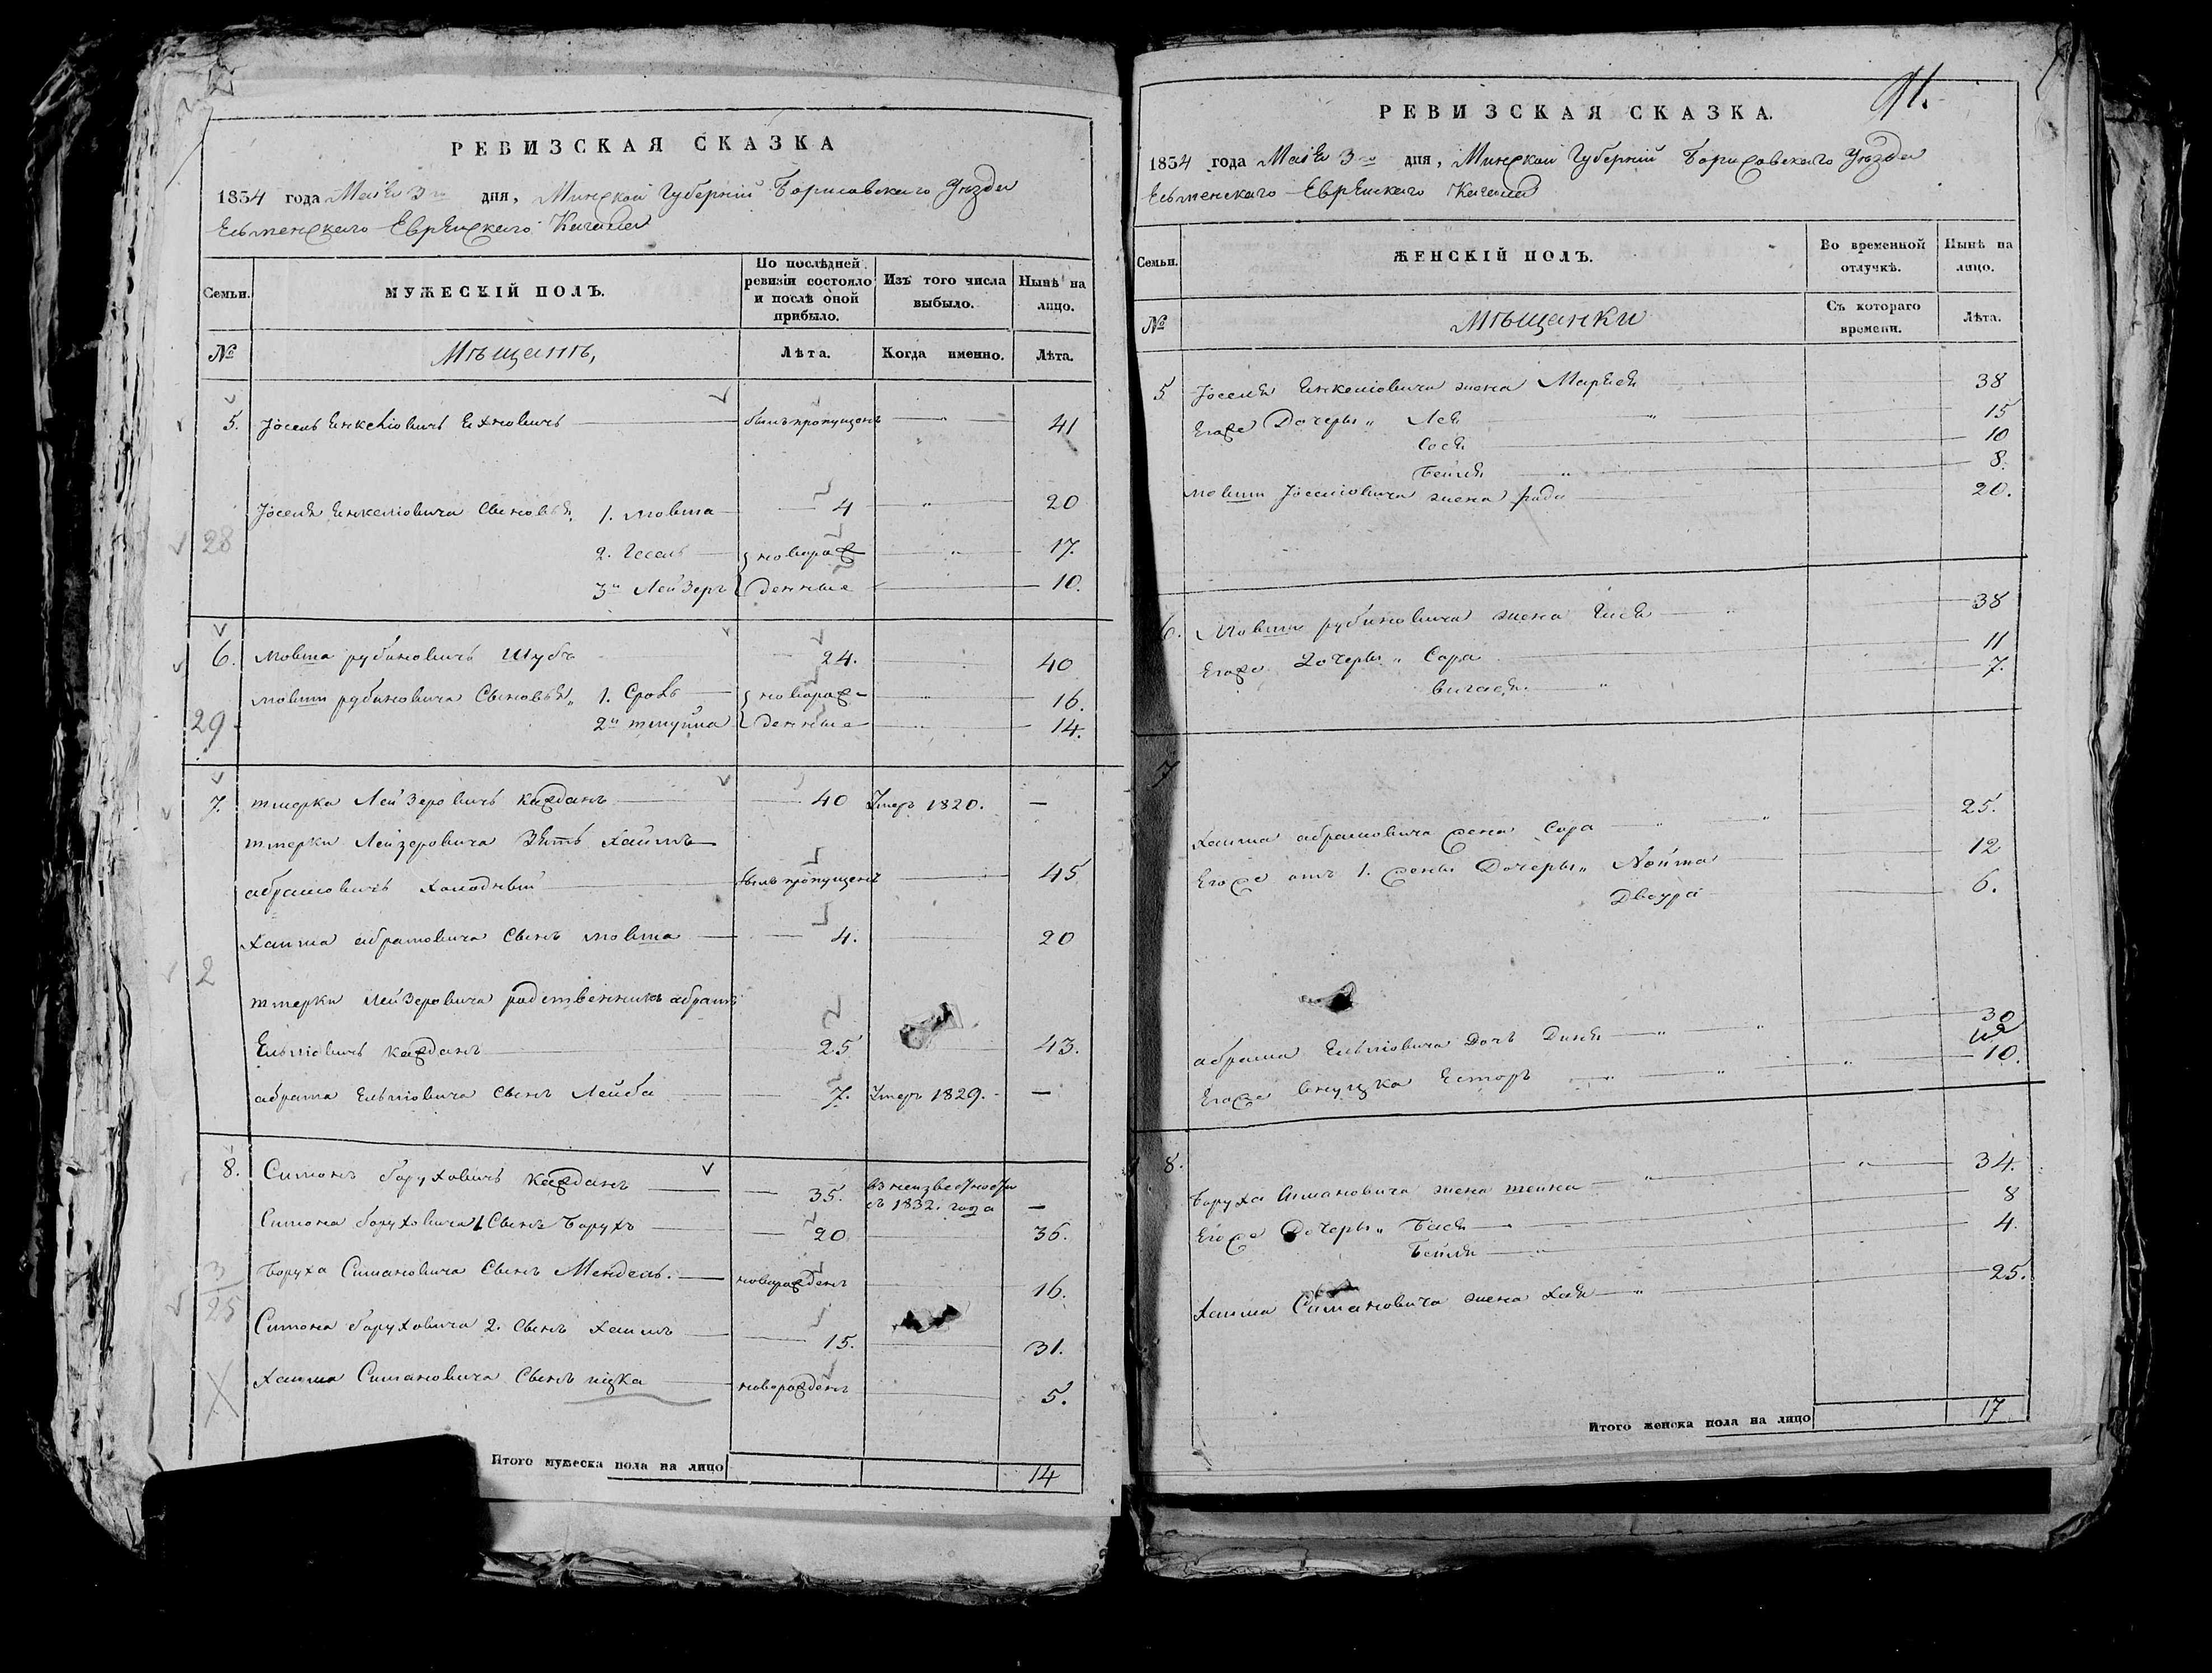 РЕВИЗСКАЯ СКАЗКА
1834 года Маія 3го дня, Минской Губерніи Борисовскаго Уѣзда
Еврейскаго Кагала
Семьи.
МУЖЕСКІЙ ПОЛЪ.
По послѣдней ревизіи состояло и послѣ оной прибыло.
Изъ того числа выбыло.
Нынѣ на лицо.
№
Мѣщанѣ,
Лѣта.
Когда именно.
Лѣта.
5. былъ пропущенъ 41
28
1. Мовша 4 20
2. новорож 17.
3 Лейзеръ денные 10.
6. Мовша Рубиновичъ Шубъ 24. 40
Мовши Рубиновича Сыновья 1. новорож 16.
29 2 денные 14.
7. Лейзеровичъ Каждан 40 Умеръ 1820. —
Лейзеровича Зять Хаимъ
Абрамовичъ Холодный былъ пропущенъ 45
Хаима Абрамовича Сынъ Мовша 4. 20
2
Лейзеровича родственникъ Абрамъ
25 43.
Абрама Сынъ Лейба 7. Умеръ 1829. —
8. Симонъ Боруховичъ Каждан 35. въ неизвестности съ 1832. года —
Симона Боруховича 1 Сынъ Борухъ 20 36.
3
25
Боруха Симановича Сынъ Мендель. новорожденъ 16.
Симона Боруховича 2. Сынъ Хаимъ 15. 31.
Хаима Симановича Сынъ Ицка новорожденъ 5.
Итого мужеска пола на лицо 14
91.
РЕВИЗСКАЯ СКАЗКА.
1834 года Маія 3го дня, Минской Губерніи Борисовскаго Уѣзда
Еврейскаго Кагала
Семьи.
ЖЕНСКІЙ ПОЛЪ.
Во временной отлучкѣ.
Нынѣ на лицо.
№
Мѣщанки
Съ котораго времени.
Лѣта.
5 жена 38
Дочеры 15
Сося 10
Бейля 8.
Мовши жена Рода 20.
6. Мовши Рубиновича жена 38
Егоже Дочеры Сора 11
7.
7
Хаима Абрамовича жена Сора 25.
Егоже отъ 1. жены Дочеры 12
Двоура 6.
30
Абрама Дочь Диня
Егоже внучка Есторъ 10.
8. Боруха Симановича жена 34.
Егоже Дочеры Бася 8
Бейля 4.
Хаима Симановича жена Хая 25.
Итого женска пола на лицо 17